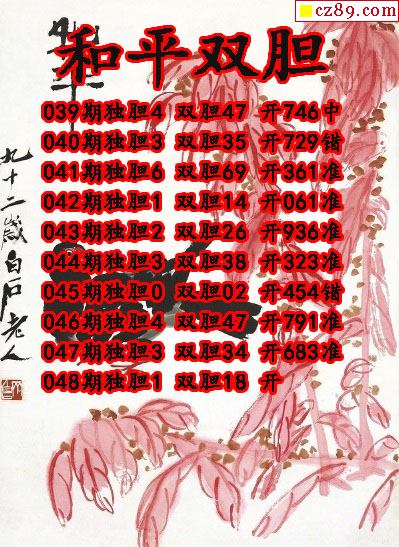 cz89.com
和平双胆
039期独胆4 双胆47 开746中
040期独胆3 双胆35 开729错
041期独胆6 双胆69 开361准
042期独胆1 双胆14 开061准
043期独胆2 双胆26 开936准
044期独胆3 双胆38 开323准
045期独胆0 双胆02 开454错
046期独胆4 双胆47 开791准
047期独胆3 双胆34 开683准
048期独胆1 双胆18 开
九十二岁白石老人